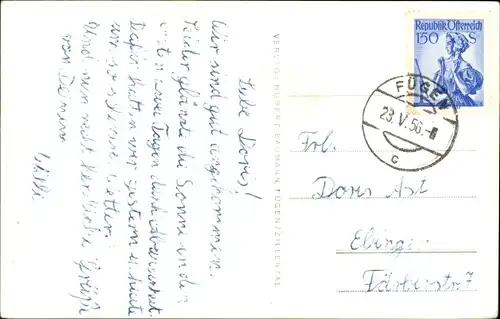 Liebe Doris!
Wir sind gut angekommen.
Leider glänzte die Sonne in den
ersten zwei Tagen durch Abwesenheit.
Dafür hatten wir gestern u. heute
um so
Und nun noch herzliche Grüße
von Deinem
Willi
VERLAG: HUBERT BAUMANN, FÜGEN/ZILLERTAL
Republik Österreich
150 S
FÜGEN
23.V.56.-8
c
Frl.
Doris Ast
Ebingen
Färberstr 7